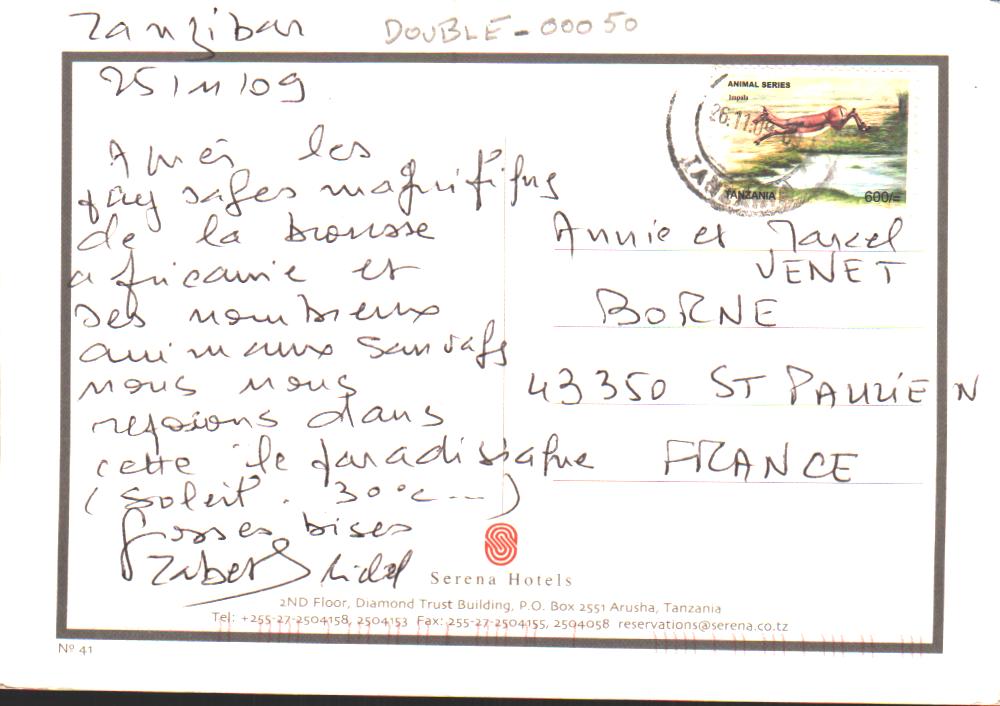 Zanzibar
DOUBLE-00050
25/11/09
Après les
paysages magnifiques
de la brousse
africaine et
ses nombreux
animaux sauvages
nous nous
reposons dans
cette île paradisiaque
(soleil. 30°c ---)
Grosses bises
ANIMAL SERIES
Impala
26.11.09
TANZANIA
600/=
Annie et Marcel
VENET
BORNE
43350 ST PAULIEN
FRANCE
Serena Hotels
2ND Floor, Diamond Trust Building, P.O. Box 2551 Arusha, Tanzania
Tel: +255-27-2504158, 2504153 Fax: 255-27-2504155, 2504058 reservations@serena.co.tz
Nº 41